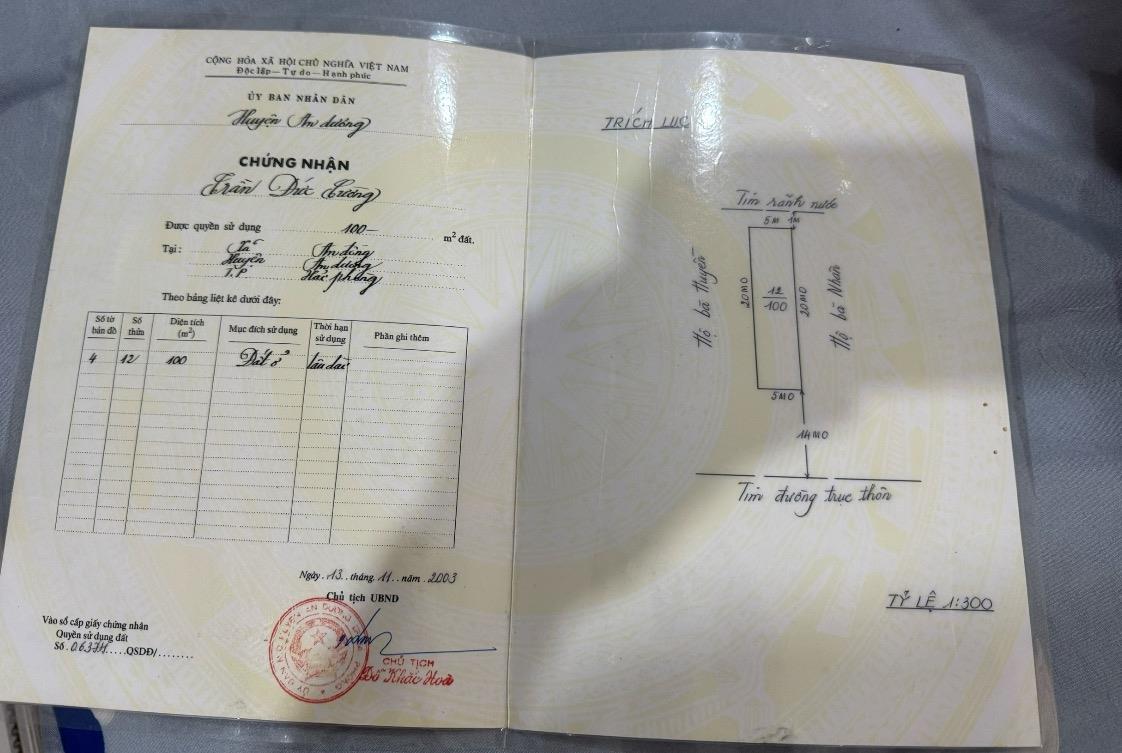 CỘNG HÒA XÃ HỘI CHỦ NGHĨA VIỆT NAM
Độc lập — Tự do — Hạnh phúc
ỦY BAN NHÂN DÂN
Huyện An dương
CHỨNG NHẬN
Trần Đức Cương
Được quyền sử dụng 100 m² đất.
Tại: Xã An đồng
Huyện An dương
T.P Hải phòng
Theo bảng liệt kê dưới đây:
Số tờ bản đồ Số thửa Diện tích (m²) Mục đích sử dụng Thời hạn sử dụng Phần ghi thêm
4 12 100 Đất ở lâu dài
Ngày 13 tháng 11 năm 2003
Chủ tịch UBND
CHỦ TỊCH
Đỗ Khắc Hoà
Vào sổ cấp giấy chứng nhận
Quyền sử dụng đất
Số QSDĐ/
TRÍCH LỤC
Tim rãnh nước
5M 1M
Hộ bà Huyền
20M0
12
100
20M0
Hộ bà Nhàn
5M0
14M0
Tim đường trục thôn
TỶ LỆ 1:300